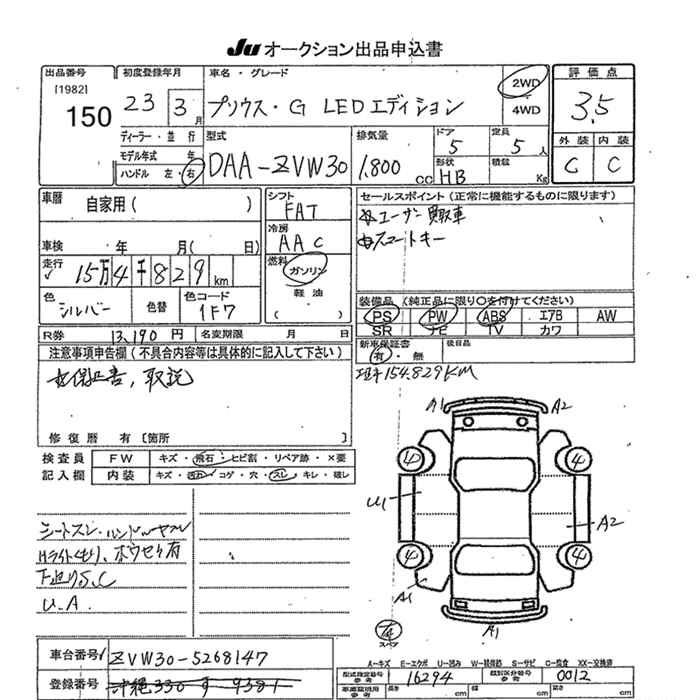 Ju オークション出品申込書
出品番号
[1982]
150
初度登録年月
23 3月
ディーラー・並 行
モデル年式 年
ハンドル 左・右
車名・グレード
プリウス・G LEDエディション
2WD
・
4WD
評価点
3.5
外装 内装
C C
型式
DAA-ZVW30
排気量
1.800 cc
ドア
5
定員
5人
形状
HB
積載
Kg
車歴
自家用( )
車検 年 月( 日)
走行
15万4千829km
色
シルバー
色替
色コード
1F7
シフト
FAT
冷房
AAC
燃料
ガソリン
軽油
( )
セールスポイント(正常に機能するものに限ります)
☆ユーザー買取車
☆スマートキー
装備品(純正品に限り○を付けてください)
PS PW ABS エアB AW
SR ナビ TV カワ
R券 13,190円 名変期限 月 日
新車保証書
有・無
後日品
注意事項申告欄(不具合内容等は具体的に記入して下さい)
☆保証書、取説
修復歴 有[箇所 ]
154.829KM
検査員
記入欄
FW キズ・飛石・ヒビ割・リペア跡・×要
内装 キズ・汚れ・コゲ・穴・スレ・キレ・破レ
シートスレ、ハンドル
Hライトくもり、ホウセキ有
下廻りS.C
U.A.
A1 A2
4 4
U1
A2
4 4
A1
A1
T4
スペア
車台番号 ZVW30-5268147
登録番号 沖縄330す9381
A-キズ E-エクボ U-凹み W-補修跡 S-サビ C-腐食 XX-交換済
型式指定番号
参考
16294
類別区分番号
参考
0012
車庫証明用
参考
長さ cm 幅 cm 高さ cm